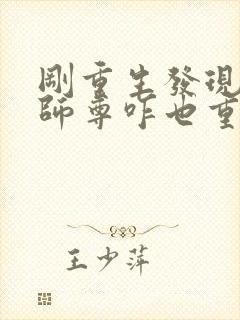 剛重生發現
師尊咋也重
王少萍